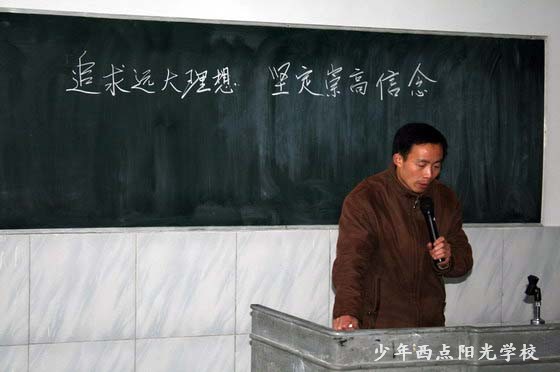 追求远大理想 坚定崇高信念
少年西点阳光学校